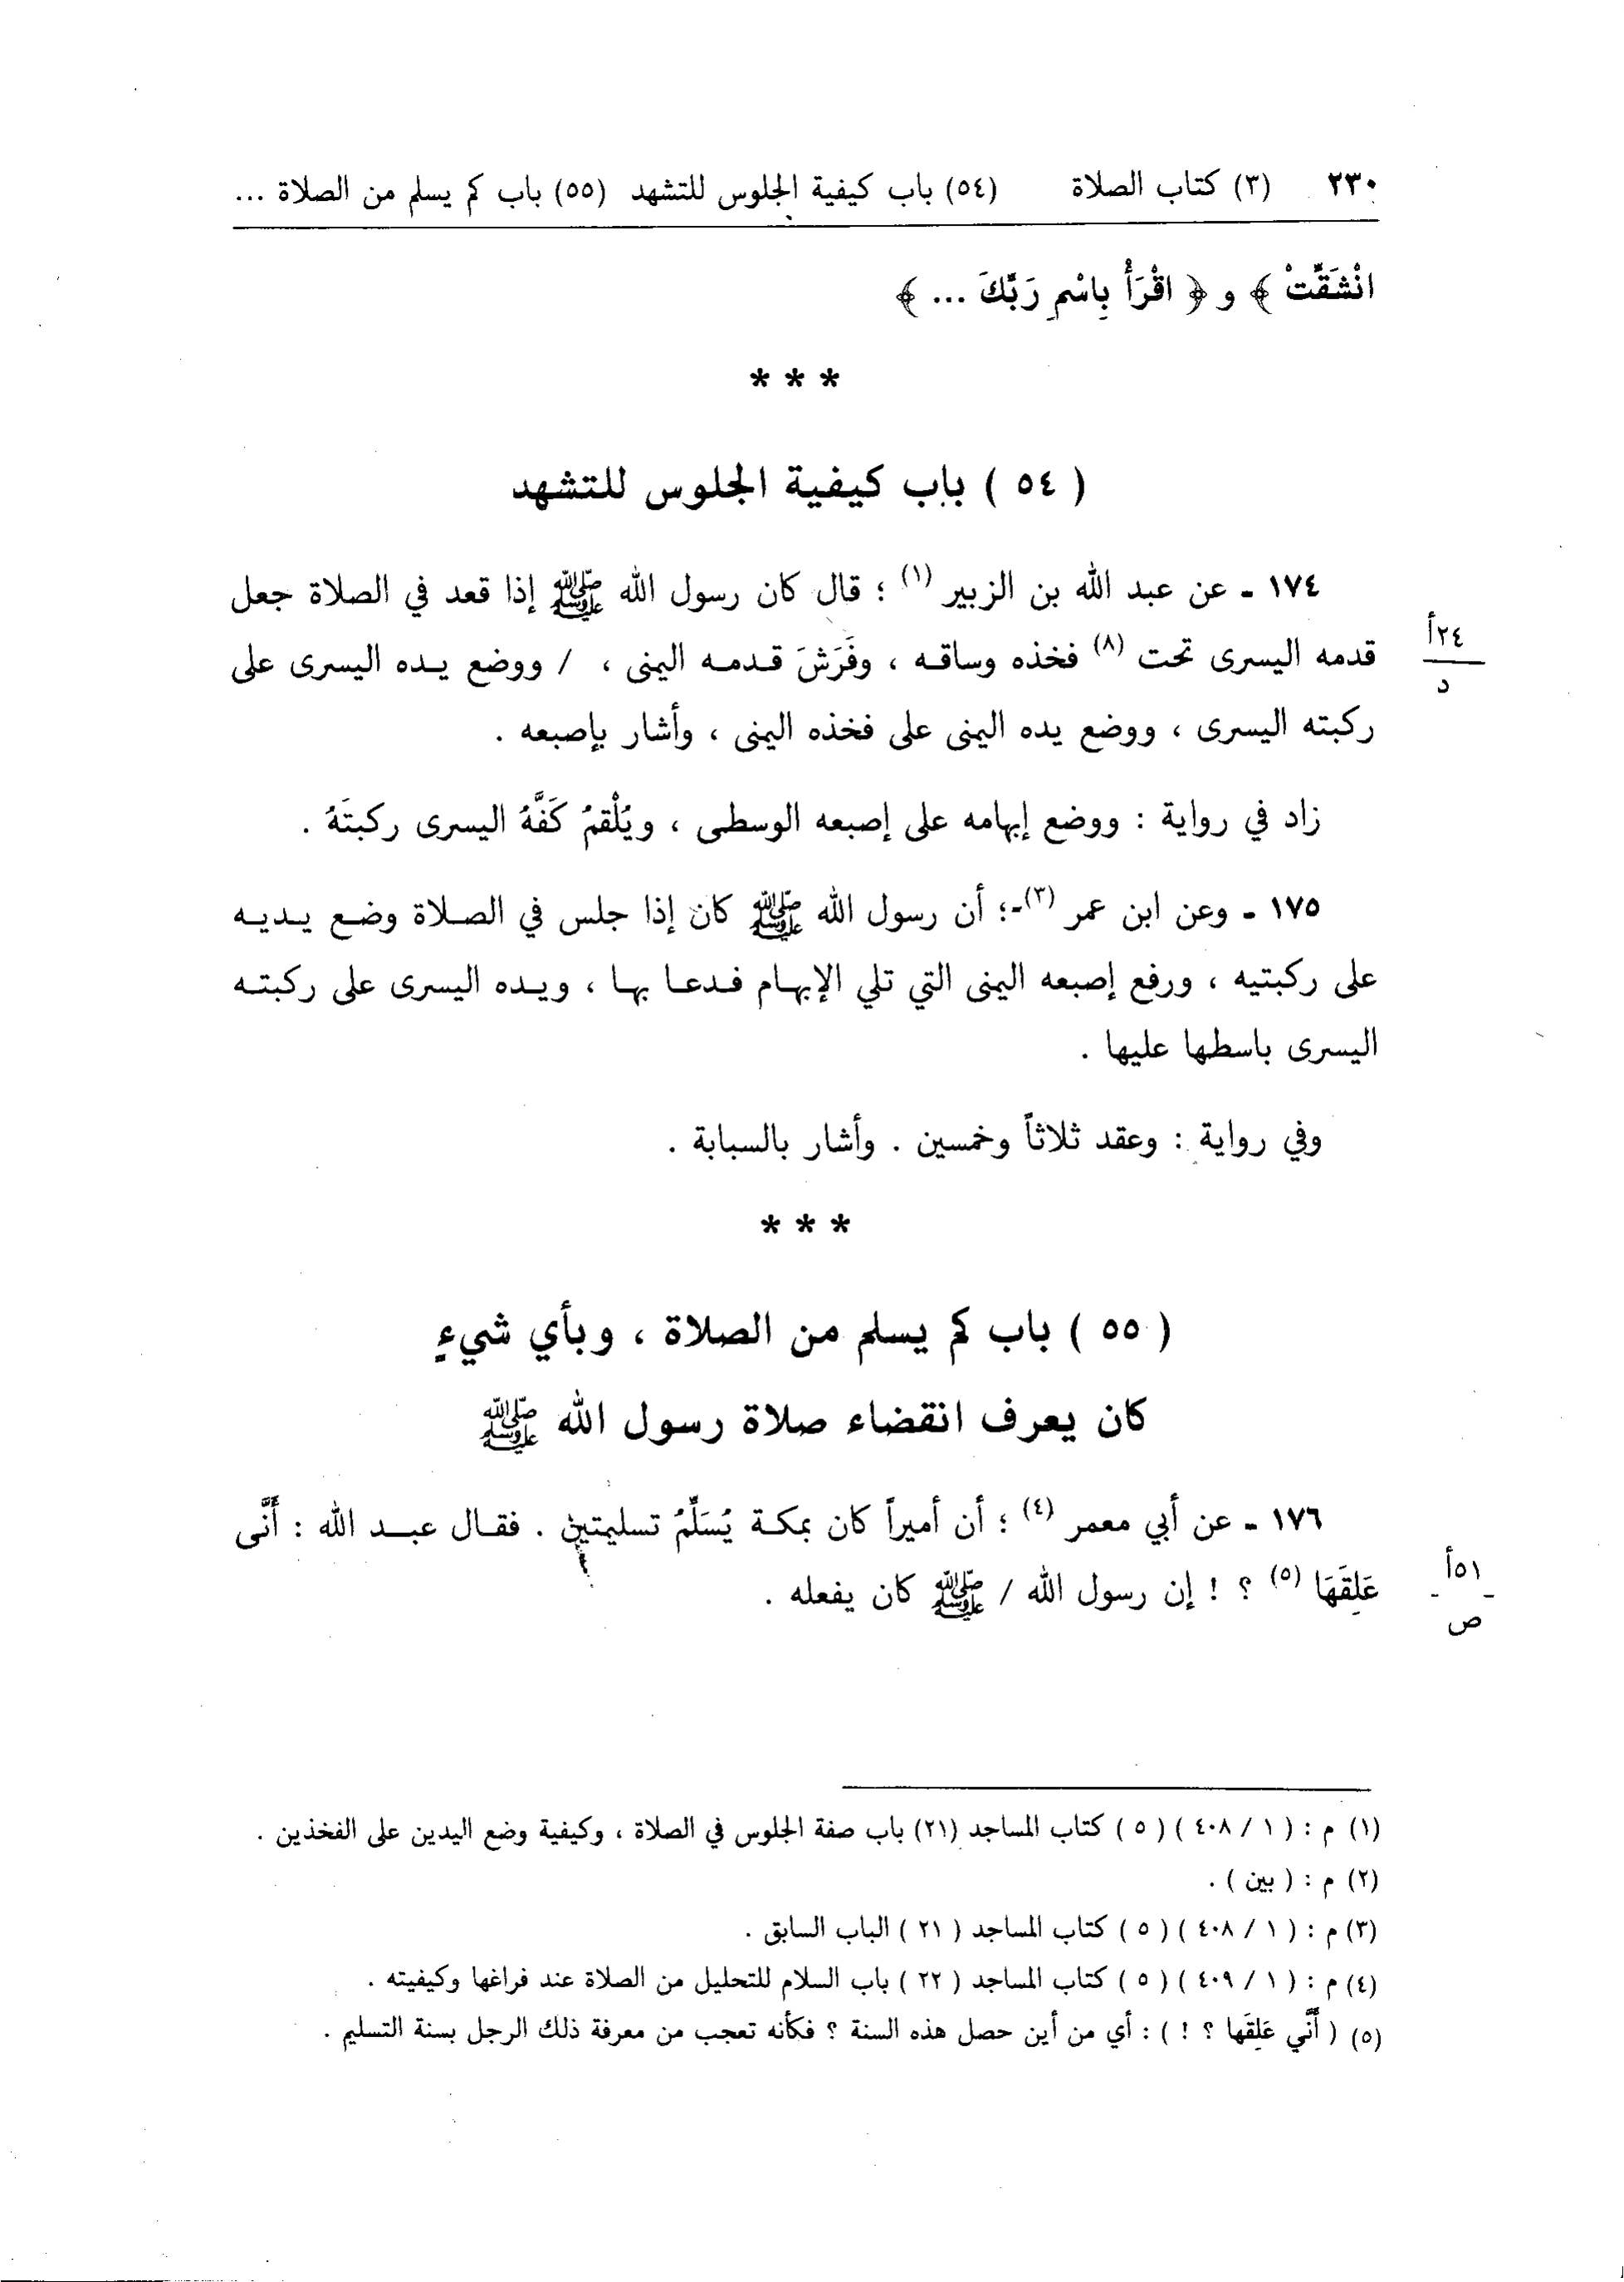 ٢٣٠ (٣) كتاب الصلاة (٥٤) باب كيفية الجلوس للتشهد (٥٥) باب كم يسلم من الصلاة ...
انْشَقَّتْ ﴾ و ﴿ اقْرَأْ بِاسْمِ رَبِّكَ ... ﴾
* * *
( ٥٤ ) باب كيفية الجلوس للتشهد
١٧٤ - عن عبد الله بن الزبير (١) ؛ قال كان رسول الله ﷺ إذا قعد في الصلاة جعل
قدمه اليسرى تحت (٨) فخذه وساقه ، وفَرَشَ قدمه اليمنى ، / ووضع يده اليسرى على
٢٤أ
د
ركبته اليسرى ، ووضع يده اليمنى على فخذه اليمنى ، وأشار بإصبعه .
زاد في رواية : ووضع إبهامه على إصبعه الوسطى ، ويُلْقِمُ كَفَّهُ اليسرى ركبتَهُ .
١٧٥ - وعن ابن عمر (٣)-؛ أن رسول الله ﷺ كان إذا جلس في الصلاة وضع يديه
على ركبتيه ، ورفع إصبعه اليمنى التي تلي الإبهام فدعا بها ، ويده اليسرى على ركبته
اليسرى باسطها عليها .
وفي رواية : وعقد ثلاثاً وخمسين . وأشار بالسبابة .
* * *
( ٥٥ ) باب كم يسلم من الصلاة ، وبأي شيءٍ
كان يعرف انقضاء صلاة رسول الله ﷺ
١٧٦ - عن أبي معمر (٤) ؛ أن أميراً كان بمكة يُسَلِّمُ تسليمتين . فقال عبد الله : أَنَّى
عَلِقَهَا (٥) ؟ ! إن رسول الله / ﷺ كان يفعله .
٥١أ
ص
(١) م : ( ١ / ٤٠٨ ) ( ٥ ) كتاب المساجد (٢١) باب صفة الجلوس في الصلاة ، وكيفية وضع اليدين على الفخذين .
(٢) م : ( بين ) .
(٣) م : ( ١ / ٤٠٨ ) ( ٥ ) كتاب المساجد ( ٢١ ) الباب السابق .
(٤) م : ( ١ / ٤٠٩ ) ( ٥ ) كتاب المساجد ( ٢٢ ) باب السلام للتحليل من الصلاة عند فراغها وكيفيته .
(٥) ( أَنَّي عَلِقَها ؟ ! ) : أي من أين حصل هذه السنة ؟ فكأنه تعجب من معرفة ذلك الرجل بسنة التسليم .